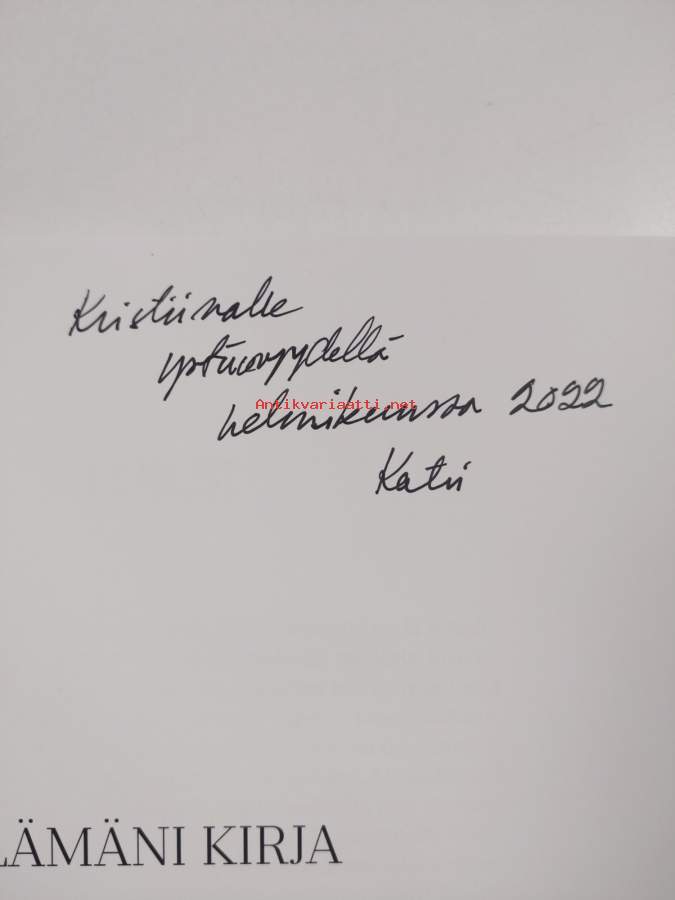 Kristiinalle
ystävyydellä
Antikvariaatti.net
helmikuussa 2022
Katri
LÄMÄNI KIRJA